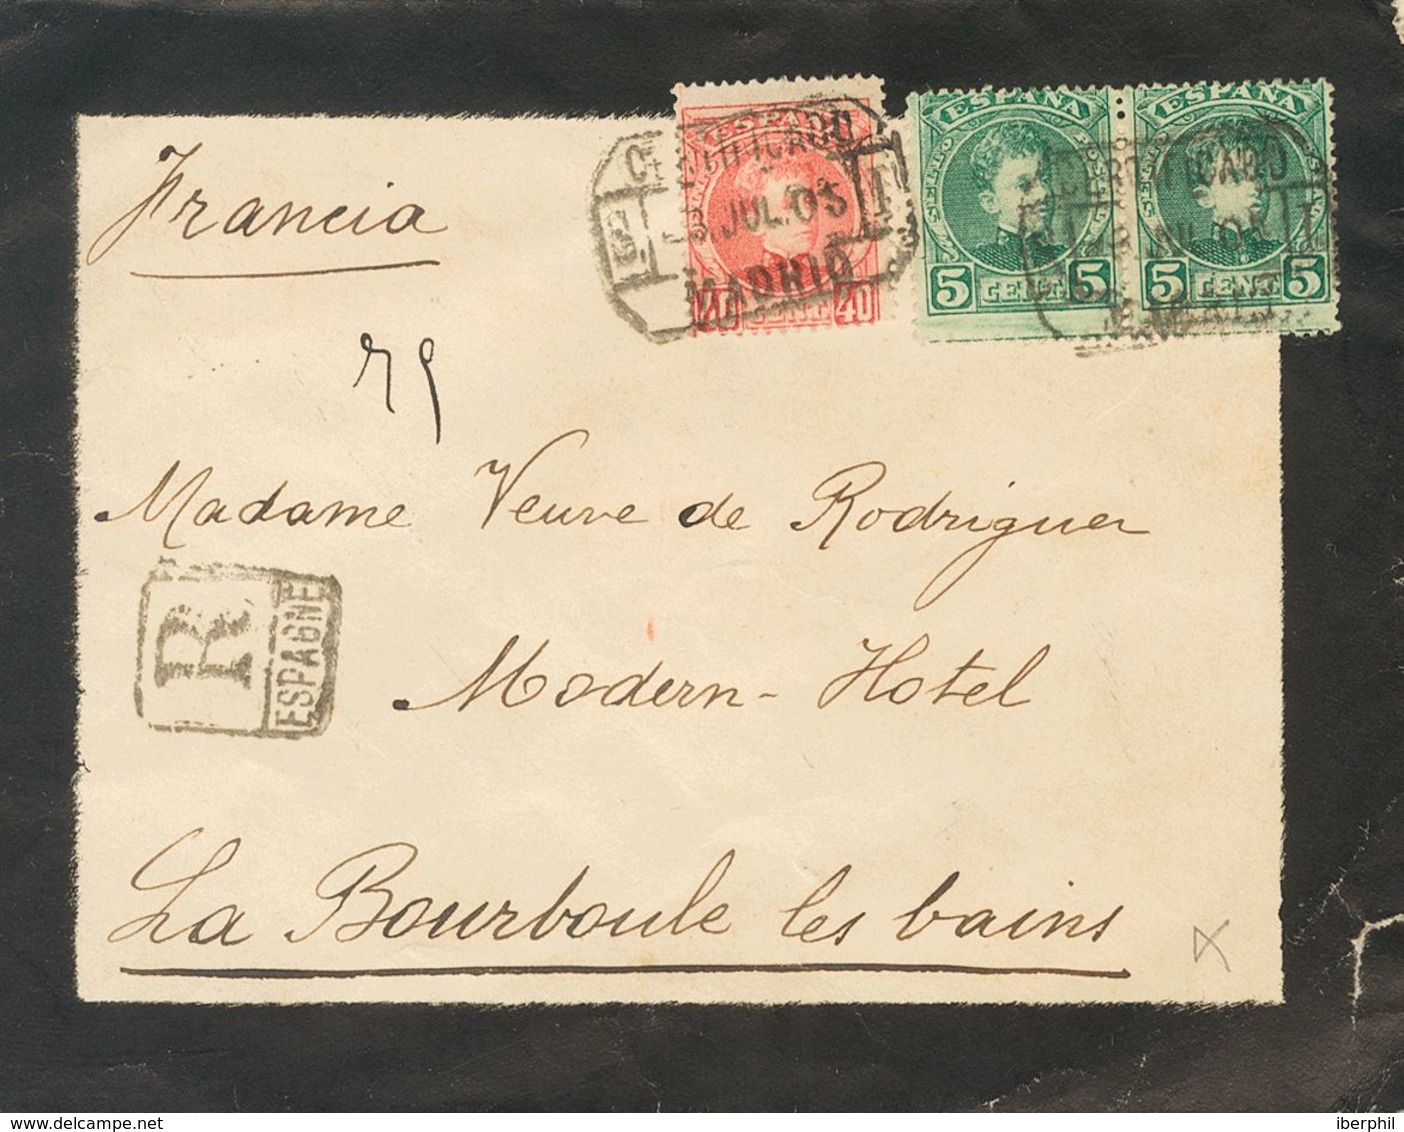 Francia
ESPAÑA
CERTIFICADO
JUL. 05
MADRID
40 CENT. 40
ESPAÑA ESPAÑA
CERTIFICADO
5 CENT. 5 5 CENT. 5
Madame Veuve de Rodriguez
R ESPAGNE
Modern-Hotel
La Bourboule les bains
delcampe.net
iberphil